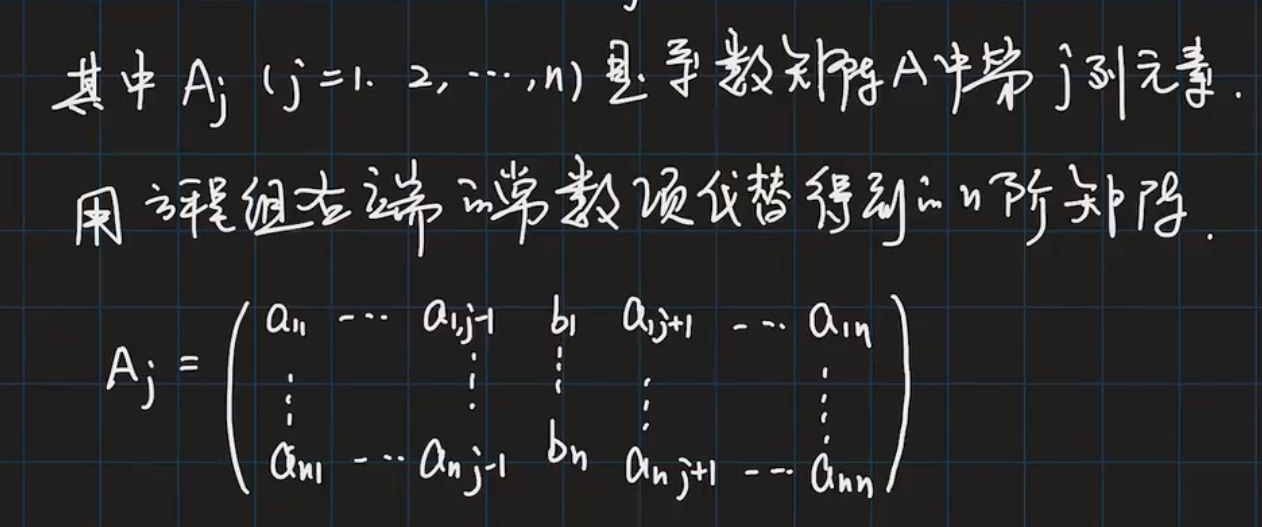 其中 Aj (j=1. 2, ⋯, n) 是系数矩阵A中第 j 列元素.
用方程组右端的常数项代替得到的n阶矩阵.
a11 ⋯ a1,j-1 b1 a1,j+1 ⋯ a1n
Aj = ( ⋮ ⋮ ⋮ ⋮ ⋮ )
an1 ⋯ an j-1 bn an j+1 ⋯ ann